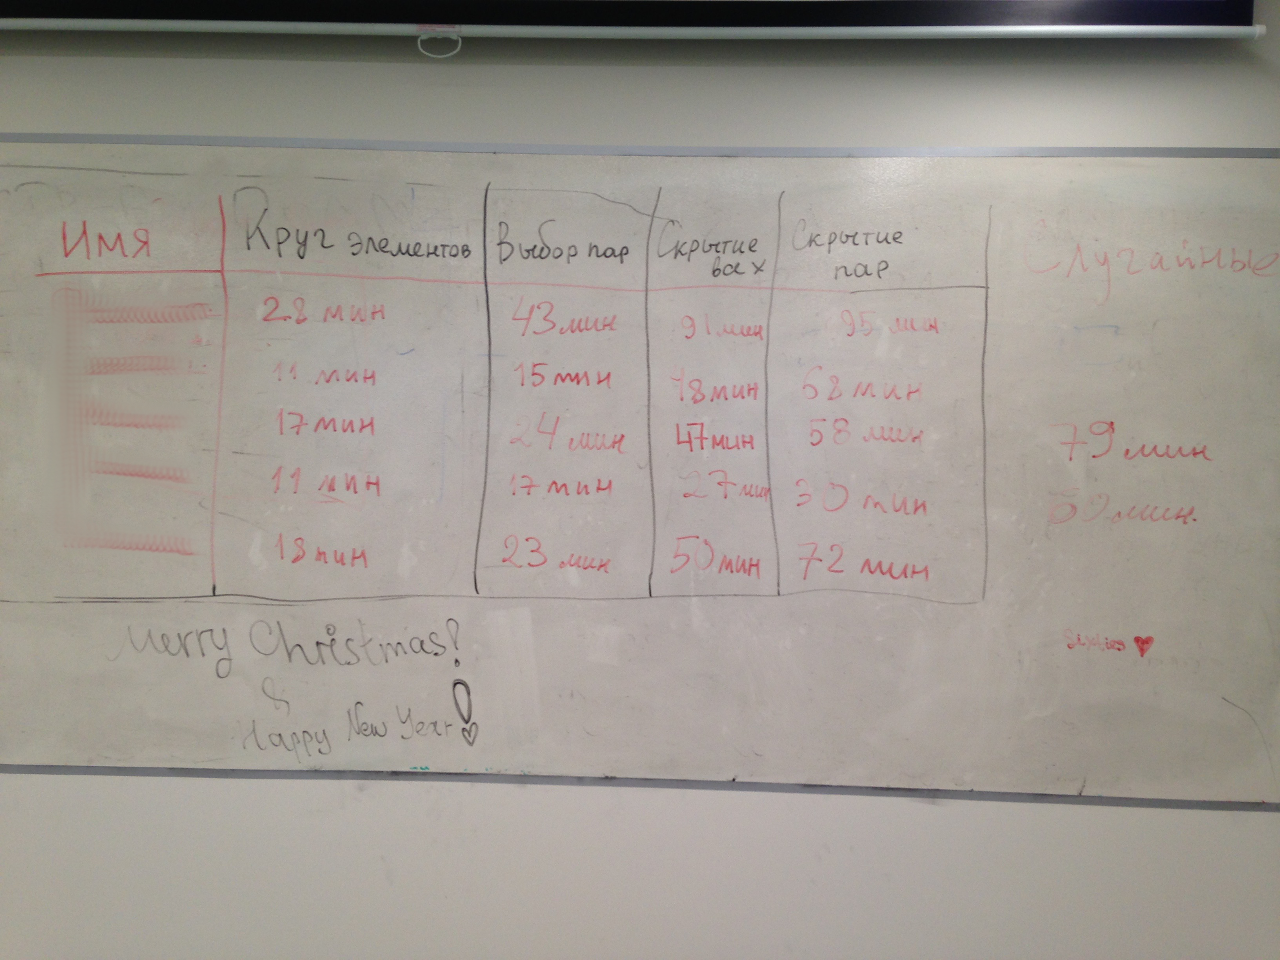 Имя Круг элементов Выбор пар Скрытие всех Скрытие пар Случайные
28 мин 43 мин 91 мин 95 мин
11 мин 15 мин 18 мин 68 мин
17 мин 24 мин 47 мин 58 мин 79 мин
11 мин 17 мин 27 мин 30 мин 59 мин.
18 мин 23 мин 50 мин 72 мин
Merry Christmas!
&
Happy New Year!